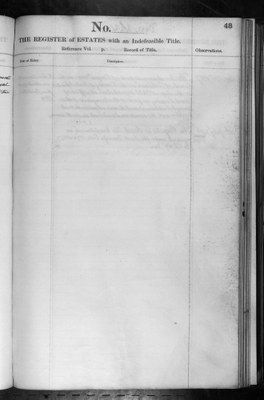 No. 48
THE REGISTER of ESTATES with an Indefeasible Title.
Reference Vol. p. Record of Title. Observations.
Date of Entry. Description.